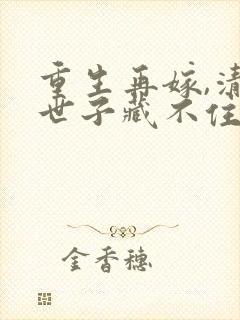 重生再嫁,清
世子藏不住
金香穗